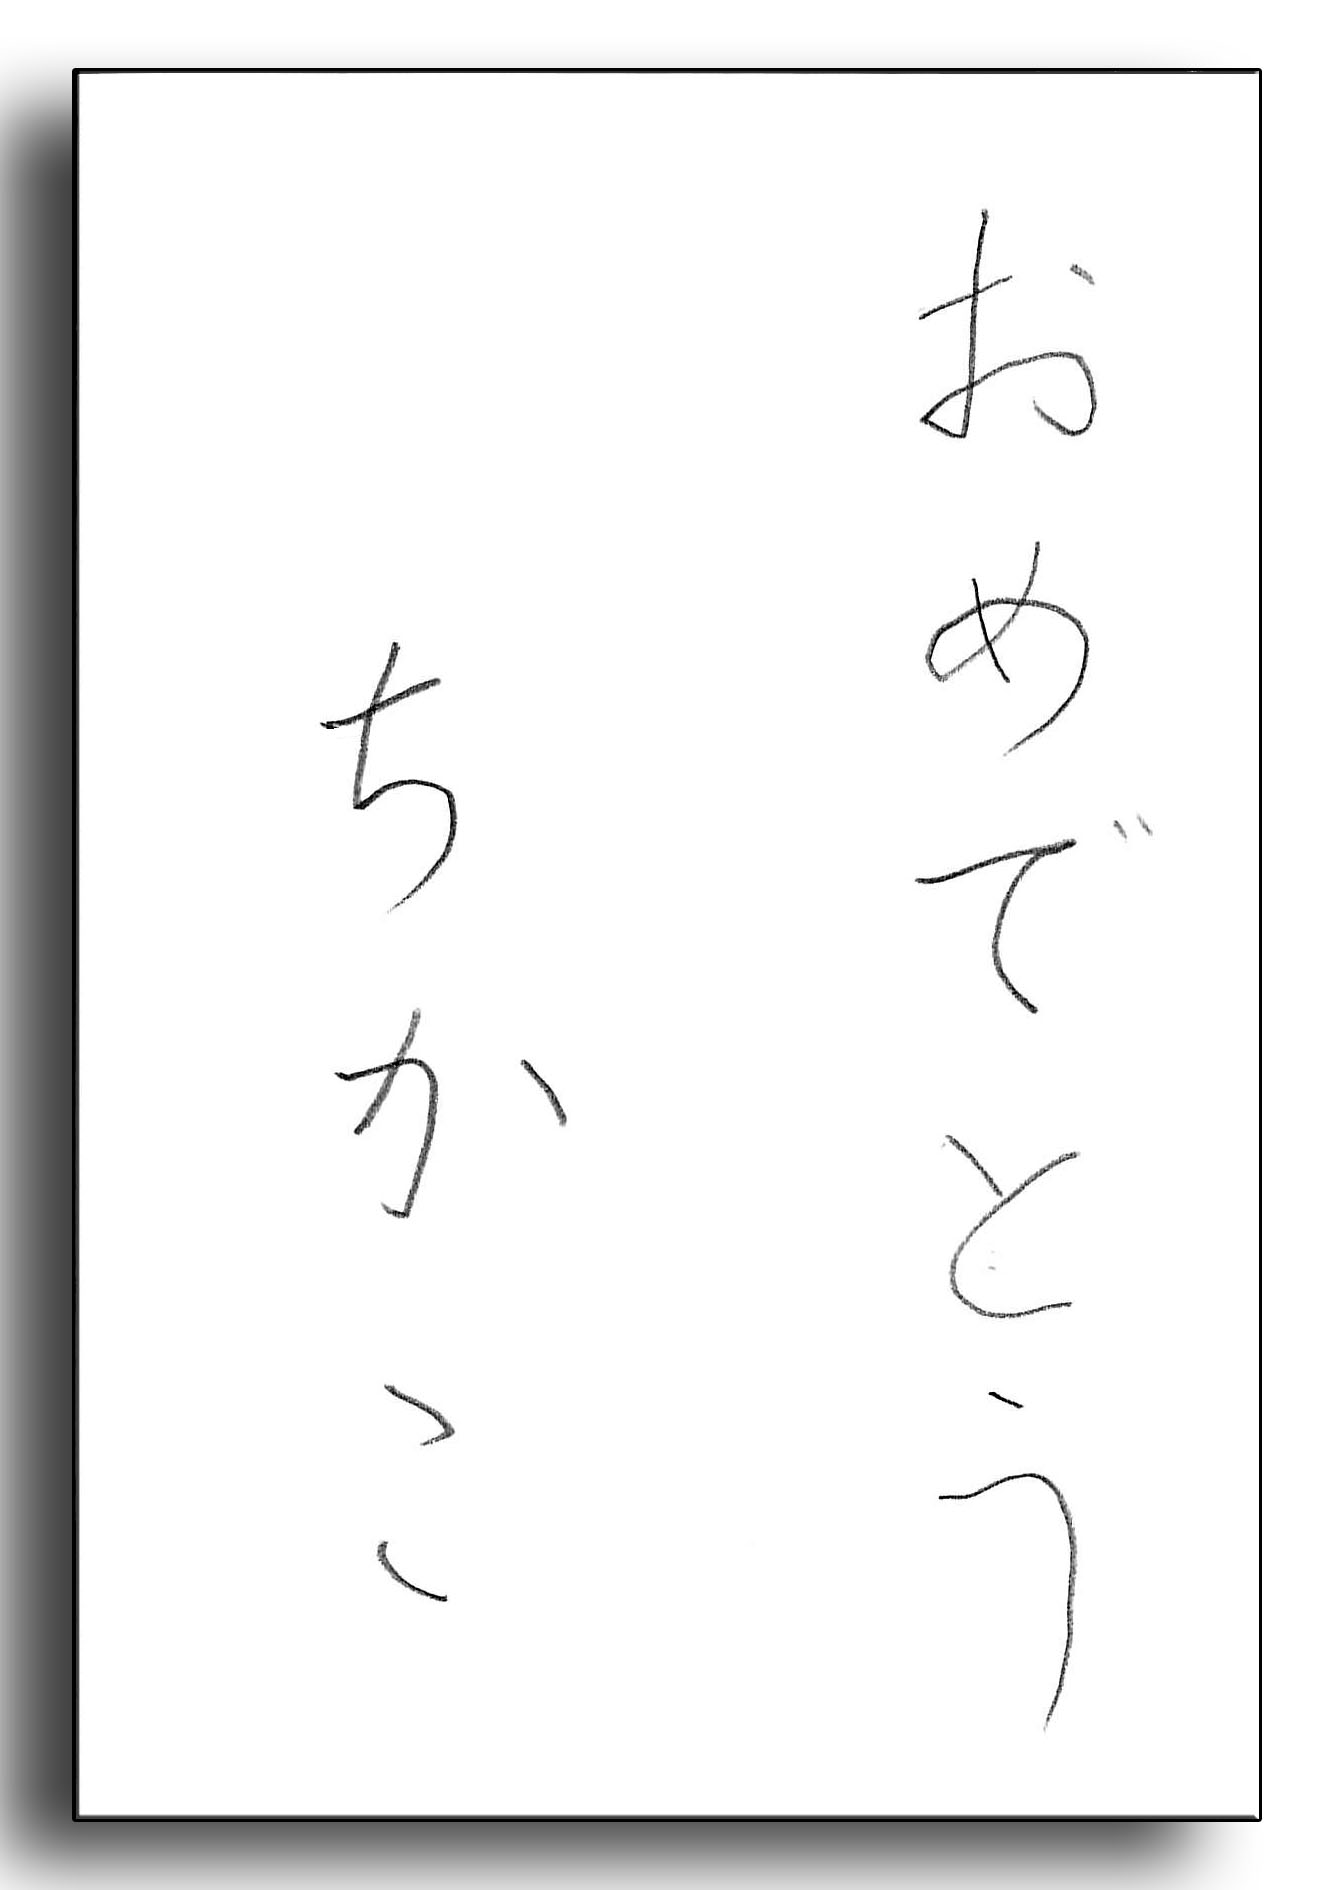 おめでとう
ちかこ